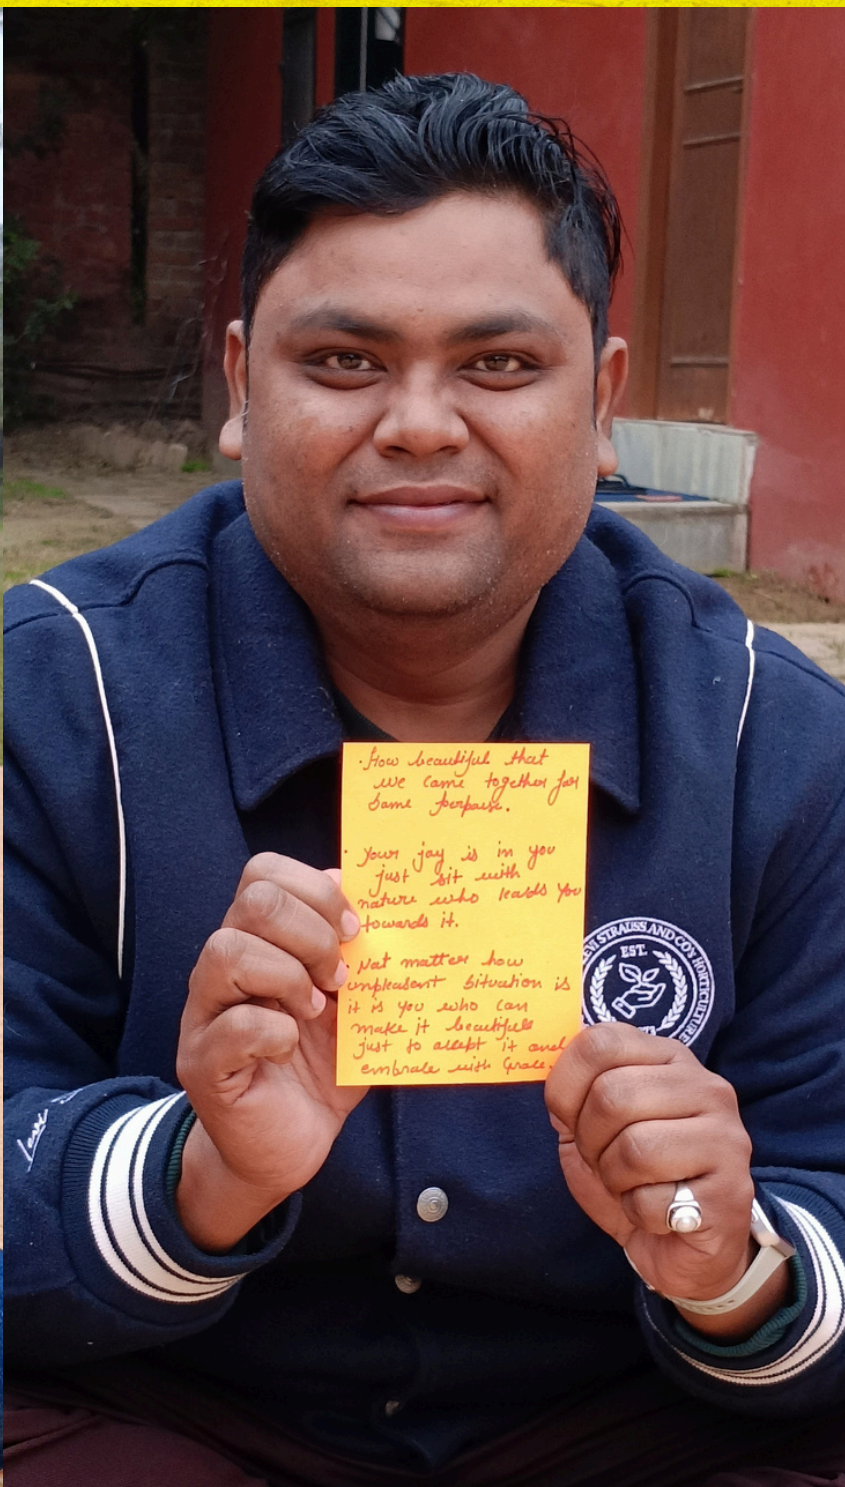 · How beautiful that
we came together for
same purpause.
· Your joy is in you
just sit with
nature who leads you
towards it.
· Not matter how
unpleasent situation is
it is you who can
make it beautiful
just to accept it and
embrace with Grace.
LEVI STRAUSS AND CO'S HORTICULTURE
EST.
Levi